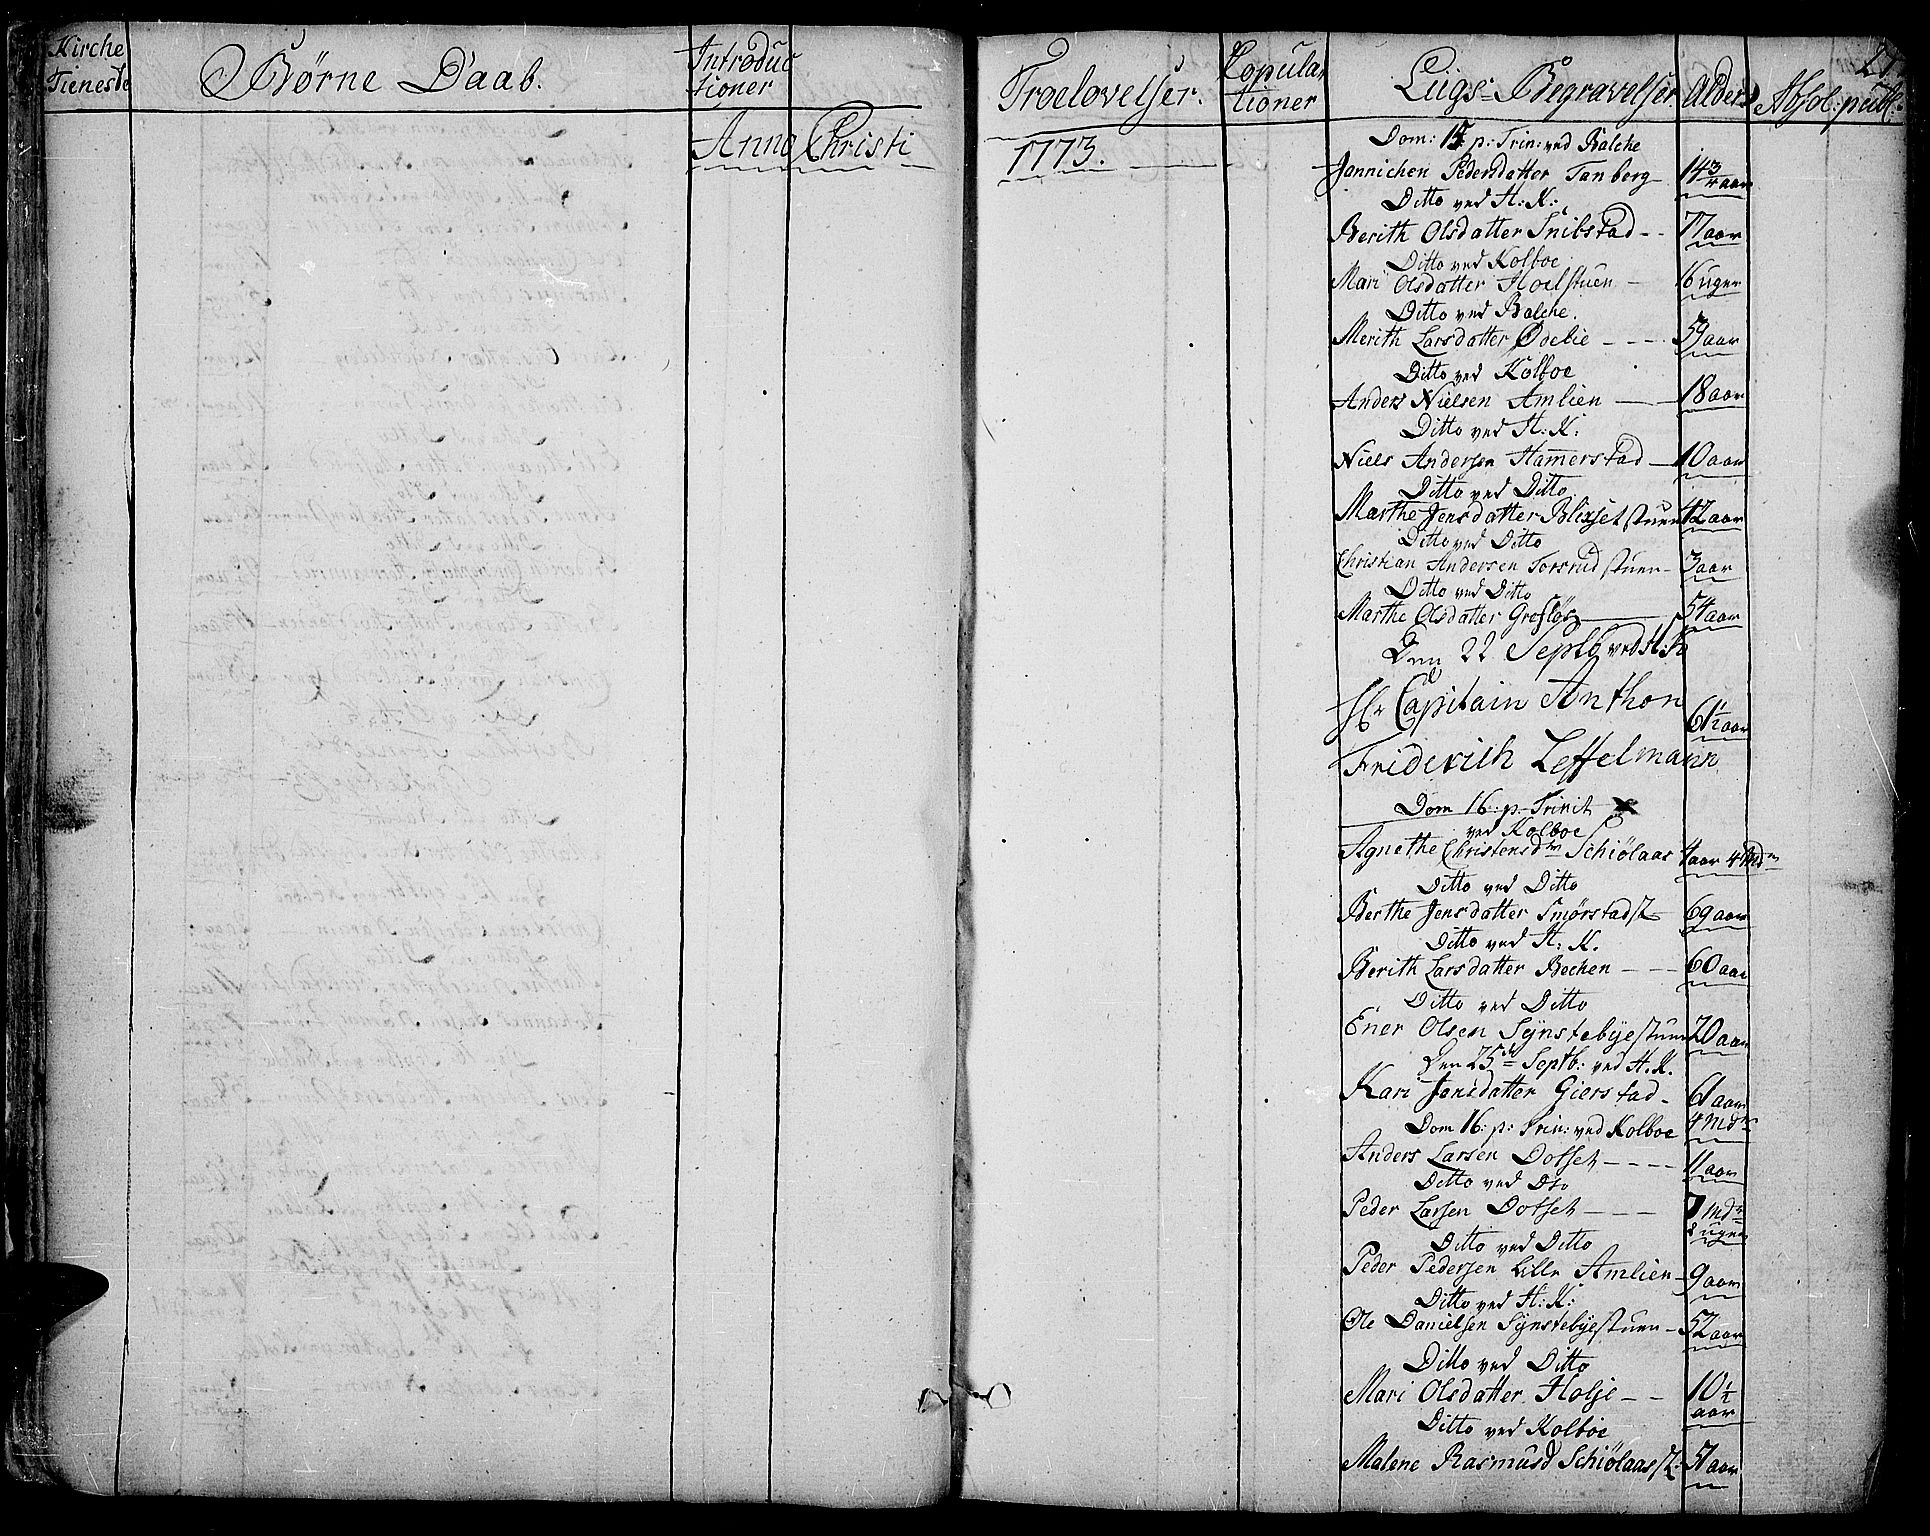 Kirche
Tieneste
Børne Daab.
Introduc
tioner
Anno Christi
Troelovelser.
Copula
tioner
Liigs-Begravelser
Alders
Absol: publ:
1773.
Dom: 15 p: Trin: ved Balche
Jannichen Pedersdatter Tanberg 14 3/4 aar
Ditto ved H: K:
Berith Olsdatter Snibstad - - 77 aar
Ditto ved Kolboe
Mari Olsdatter Hoelstuen - 16 uger
Ditto ved Balche.
Merith Larsdatter Ødelie - - - 59 aar
Ditto ved Kolboe
Anders Nielsen Amlien - 18 aar
Ditto ved H: K:
Niels Andersen Hamerstad - 10 aar
Ditto ved Ditto
Marthe Jensdatter Blixsetstuen 42 aar
Ditto ved Ditto
Christian Andersen Torsrudstuen - 3 aar
Ditto ved Ditto
Marthe Olsdatter Grosløs - 54 aar
Den 22 Septb ved H: K
Hr Capitain Anthon
61 1/2 aar
Friderich Leffelmann
Dom 16: p: Trinit
ved Kolboe
Agnethe Christensdtr Schiølaas 4 aar 4 Mdr
Ditto ved Ditto
Berthe Jensdatter Smørstadst 69 aar
Ditto ved H: K.
Berith Larsdatter Bechen - - - 60 aar
Ditto ved Ditto
Ener Olsen Synstebyestuen 20 aar
Den 25de Septb: ved H. K.
Kari Jonsdatter Gierstad - 61 aar
4 Mdr
Dom 16: p: Trin: ved Kolboe
Anders Larsen Dotset - - - - 11 aar
Ditto ved Dto
Peder Larsen Dotset - - - 7 Mdr
2 uger
Ditto ved Ditto
Peder Pedersen Lille Amlien - 9 aar
Ditto ved H: K:
Ole Danielsen Synstebyestuen - 52 aar
Ditto ved Ditto
Mari Olsdatter Holje - - 10 1/2
aar
Ditto ved Kolboe
Malene Rasmusd Schiølaasst: 51 aar